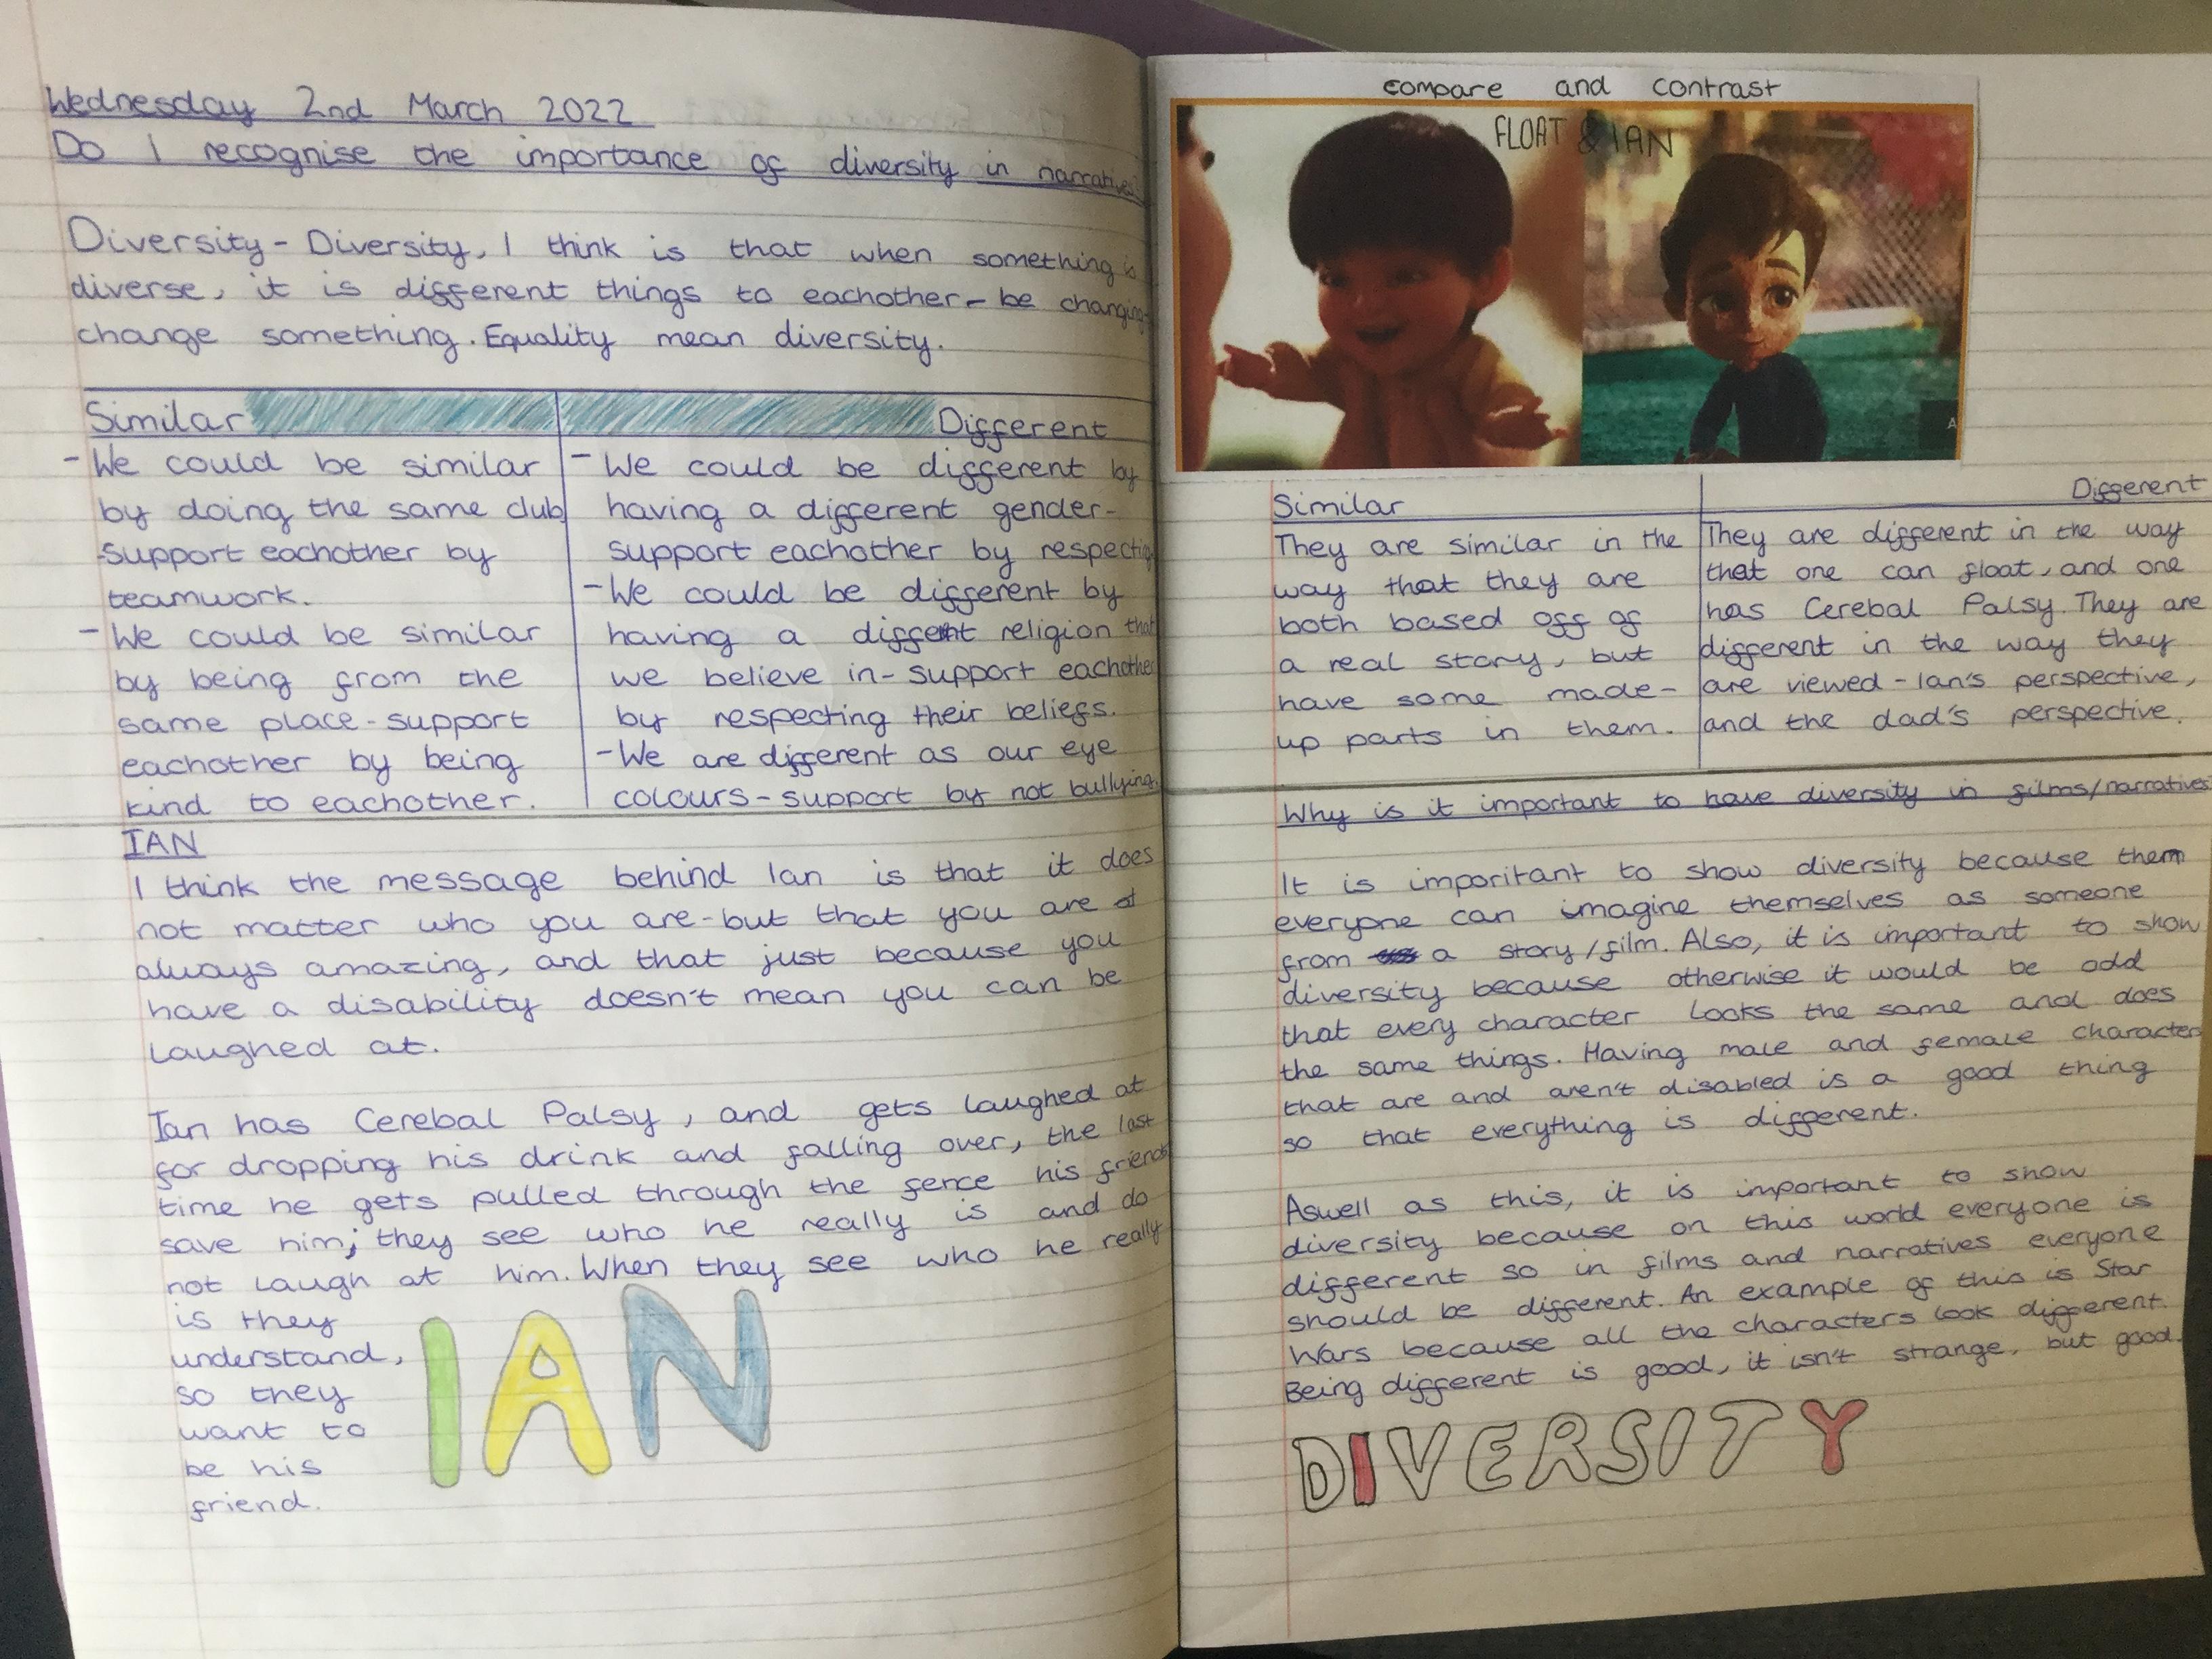 Wednesday 2nd March 2022
Do I recognise the importance of diversity in narratives?
Diversity - Diversity, I think is that when something is
diverse, it is different things to eachother - be changing -
change something. Equality mean diversity.
Similar
- We could be similar
by doing the same club
- support eachother by
teamwork.
- We could be similar
by being from the
same place - support
eachother by being
kind to eachother.
Different
- We could be different by
having a different gender -
support eachother by respecting
- We could be different by
having a different religion that
we believe in - support eachother
by respecting their beliefs.
- We are different as our eye
colours - support by not bullying.
IAN
I think the message behind Ian is that it does
not matter who you are - but that you are
always amazing, and that just because you
have a disability doesn't mean you can be
laughed at.
Ian has Cerebal Palsy, and gets laughed at
for dropping his drink and falling over, the last
time he gets pulled through the fence his friends
save him; they see who he really is and do
not laugh at him. When they see who he really
is they
understand,
so they
want to
be his
friend.
IAN
compare and contrast
FLOAT & IAN
A
Similar
They are similar in the
way that they are
both based off of
a real story, but
have some made-
up parts in them.
Different
They are different in the way
that one can float, and one
has Cerebal Palsy. They are
different in the way they
are viewed - Ian's perspective,
and the dad's perspective.
Why is it important to have diversity in films/narratives?
It is imporitant to show diversity because them
everyone can imagine themselves as someone
from a story/film. Also, it is important to show
diversity because otherwise it would be odd
that every character looks the same and does
the same things. Having male and female characters
that are and aren't disabled is a good thing
so that everything is different.
Aswell as this, it is important to show
diversity because on this world everyone is
different so in films and narratives everyone
should be different. An example of this is Star
Wars because all the characters look different.
Being different is good, it isn't strange, but good.
DIVERSITY